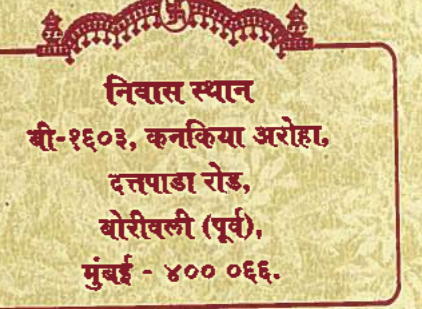 निवास स्थान
बी-१६०३, कनकिया अरोहा,
दत्तपाडा रोड,
बोरीवली (पूर्व),
मुंबई - ४०० ०६६.